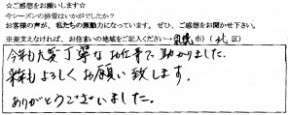 ☆ご感想をお願いします☆
今シーズンの除雪はいかがでしたか?
お客様の声が、私たちの振動力になっています。ぜひ、ご感想をお聞かせ下さい。
※差支えなければ、お住まいの地域をご記入ください→(札幌市)(北区)
今年も大変丁寧なお仕事で助かりました。
来年もよろしくお願い致します。
ありがとうございました。